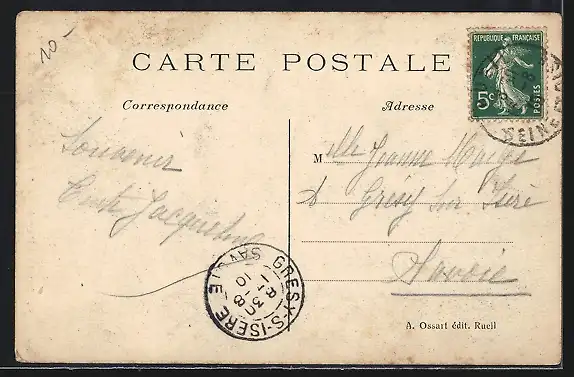 10-
CARTE POSTALE
REPUBLIQUE FRANÇAISE
5c
POSTES
Correspondance
Adresse
Souvenir
Jacqueline
Mlle Jeanne
à Grésy sur Isère
Savoie
GRESY-S-ISÈRE
SAVOIE
30-8
10
SEINE
A. Ossart édit. Rueil